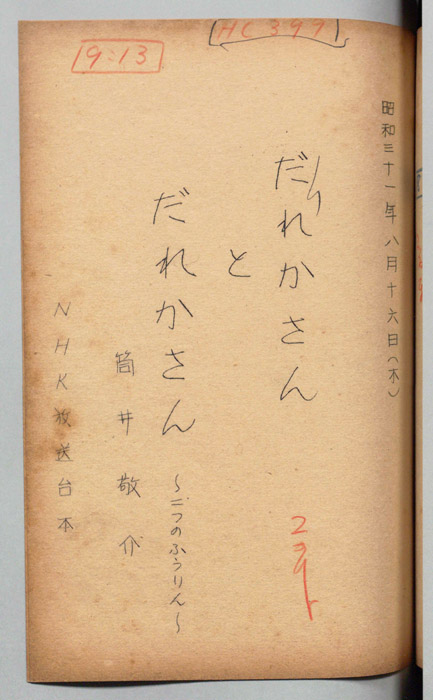 HC399
9:13
昭和三十一年八月十六日(木)
だれかさん
と
だれかさん
~二つのふうりん~
筒井敬介
NHK放送台本